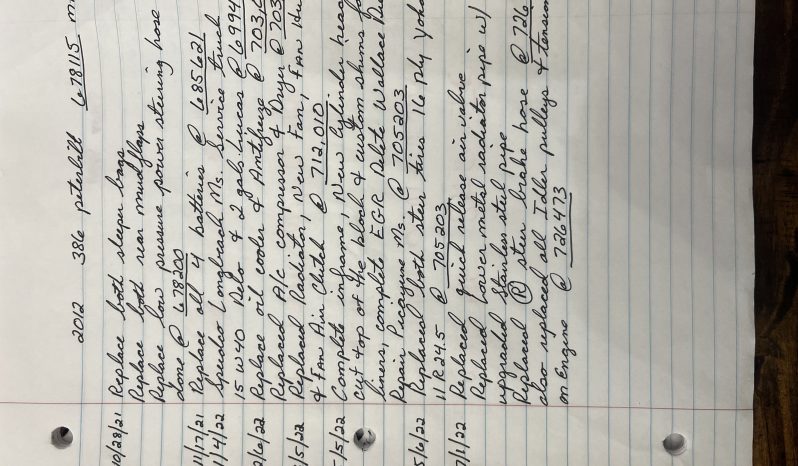 2012 386 peterbilt 678115 m
10/28/21 Replace both sleeper bags
Replace both rear mudflaps
Replace low pressure power steering hose
done @ 678200
11/17/21 Replace all 4 batteries @ 685621
1/4/22 Speedco Longbeach Ms. Service truck
15 W40 Delo & 2 gals Lucas @ 6994
2/6/22 Replace oil cooler & Antifreeze @ 703,
Replaced A/c compressor & Dryer @ 703
/5/22 Replaced Radiator, New Fan, Fan
& Fan Air Clutch @ 712,010
-/5/22 Complete inframe, New cylinder head
cut top of the block & custom shims f
liners, complete EGR Delete Wallace D
Repair Picayune Ms. @ 705203
5/6/22 Replaced both steer tires 16 ply
11 R 24.5 @ 705203
7/1/22 Replaced quick release air valve
Replaced Lower metal radiator pipe w/
upgraded Stainless steel pipe
Replaced R steer brake hose @ 726
also replaced all Idler pulleys & tension
on Engine @ 726473